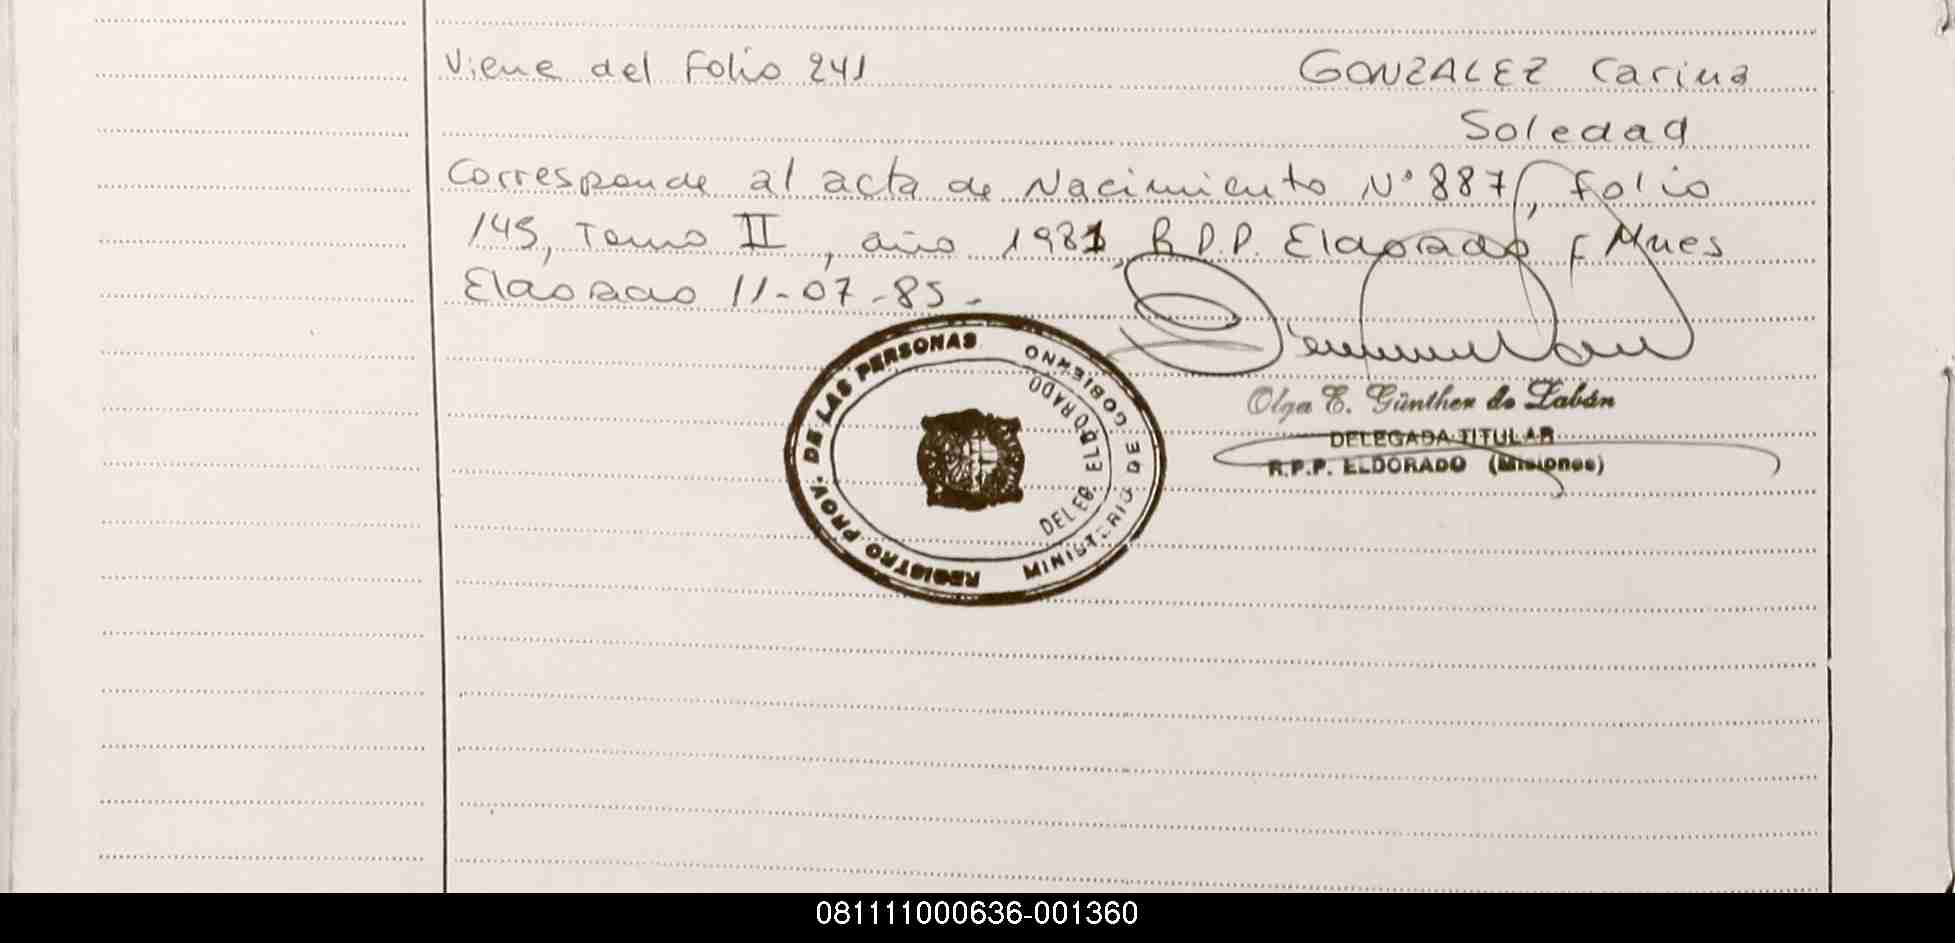 Viene del Folio 241 GONZALEZ Carina
Soledad
Corresponde al acta de Nacimiento N° 887, Folio
145, Tomo II, año 1981, R.P.P. Eldorado, Mnes
Eldorado 11-07-85.-
REGISTRO PROV. DE LAS PERSONAS
MINISTERIO DE GOBIERNO
DELEG. ELDORADO
Olga E. Günther de Labán
DELEGADA TITULAR
R.P.P. ELDORADO (Misiones)
081111000636-001360